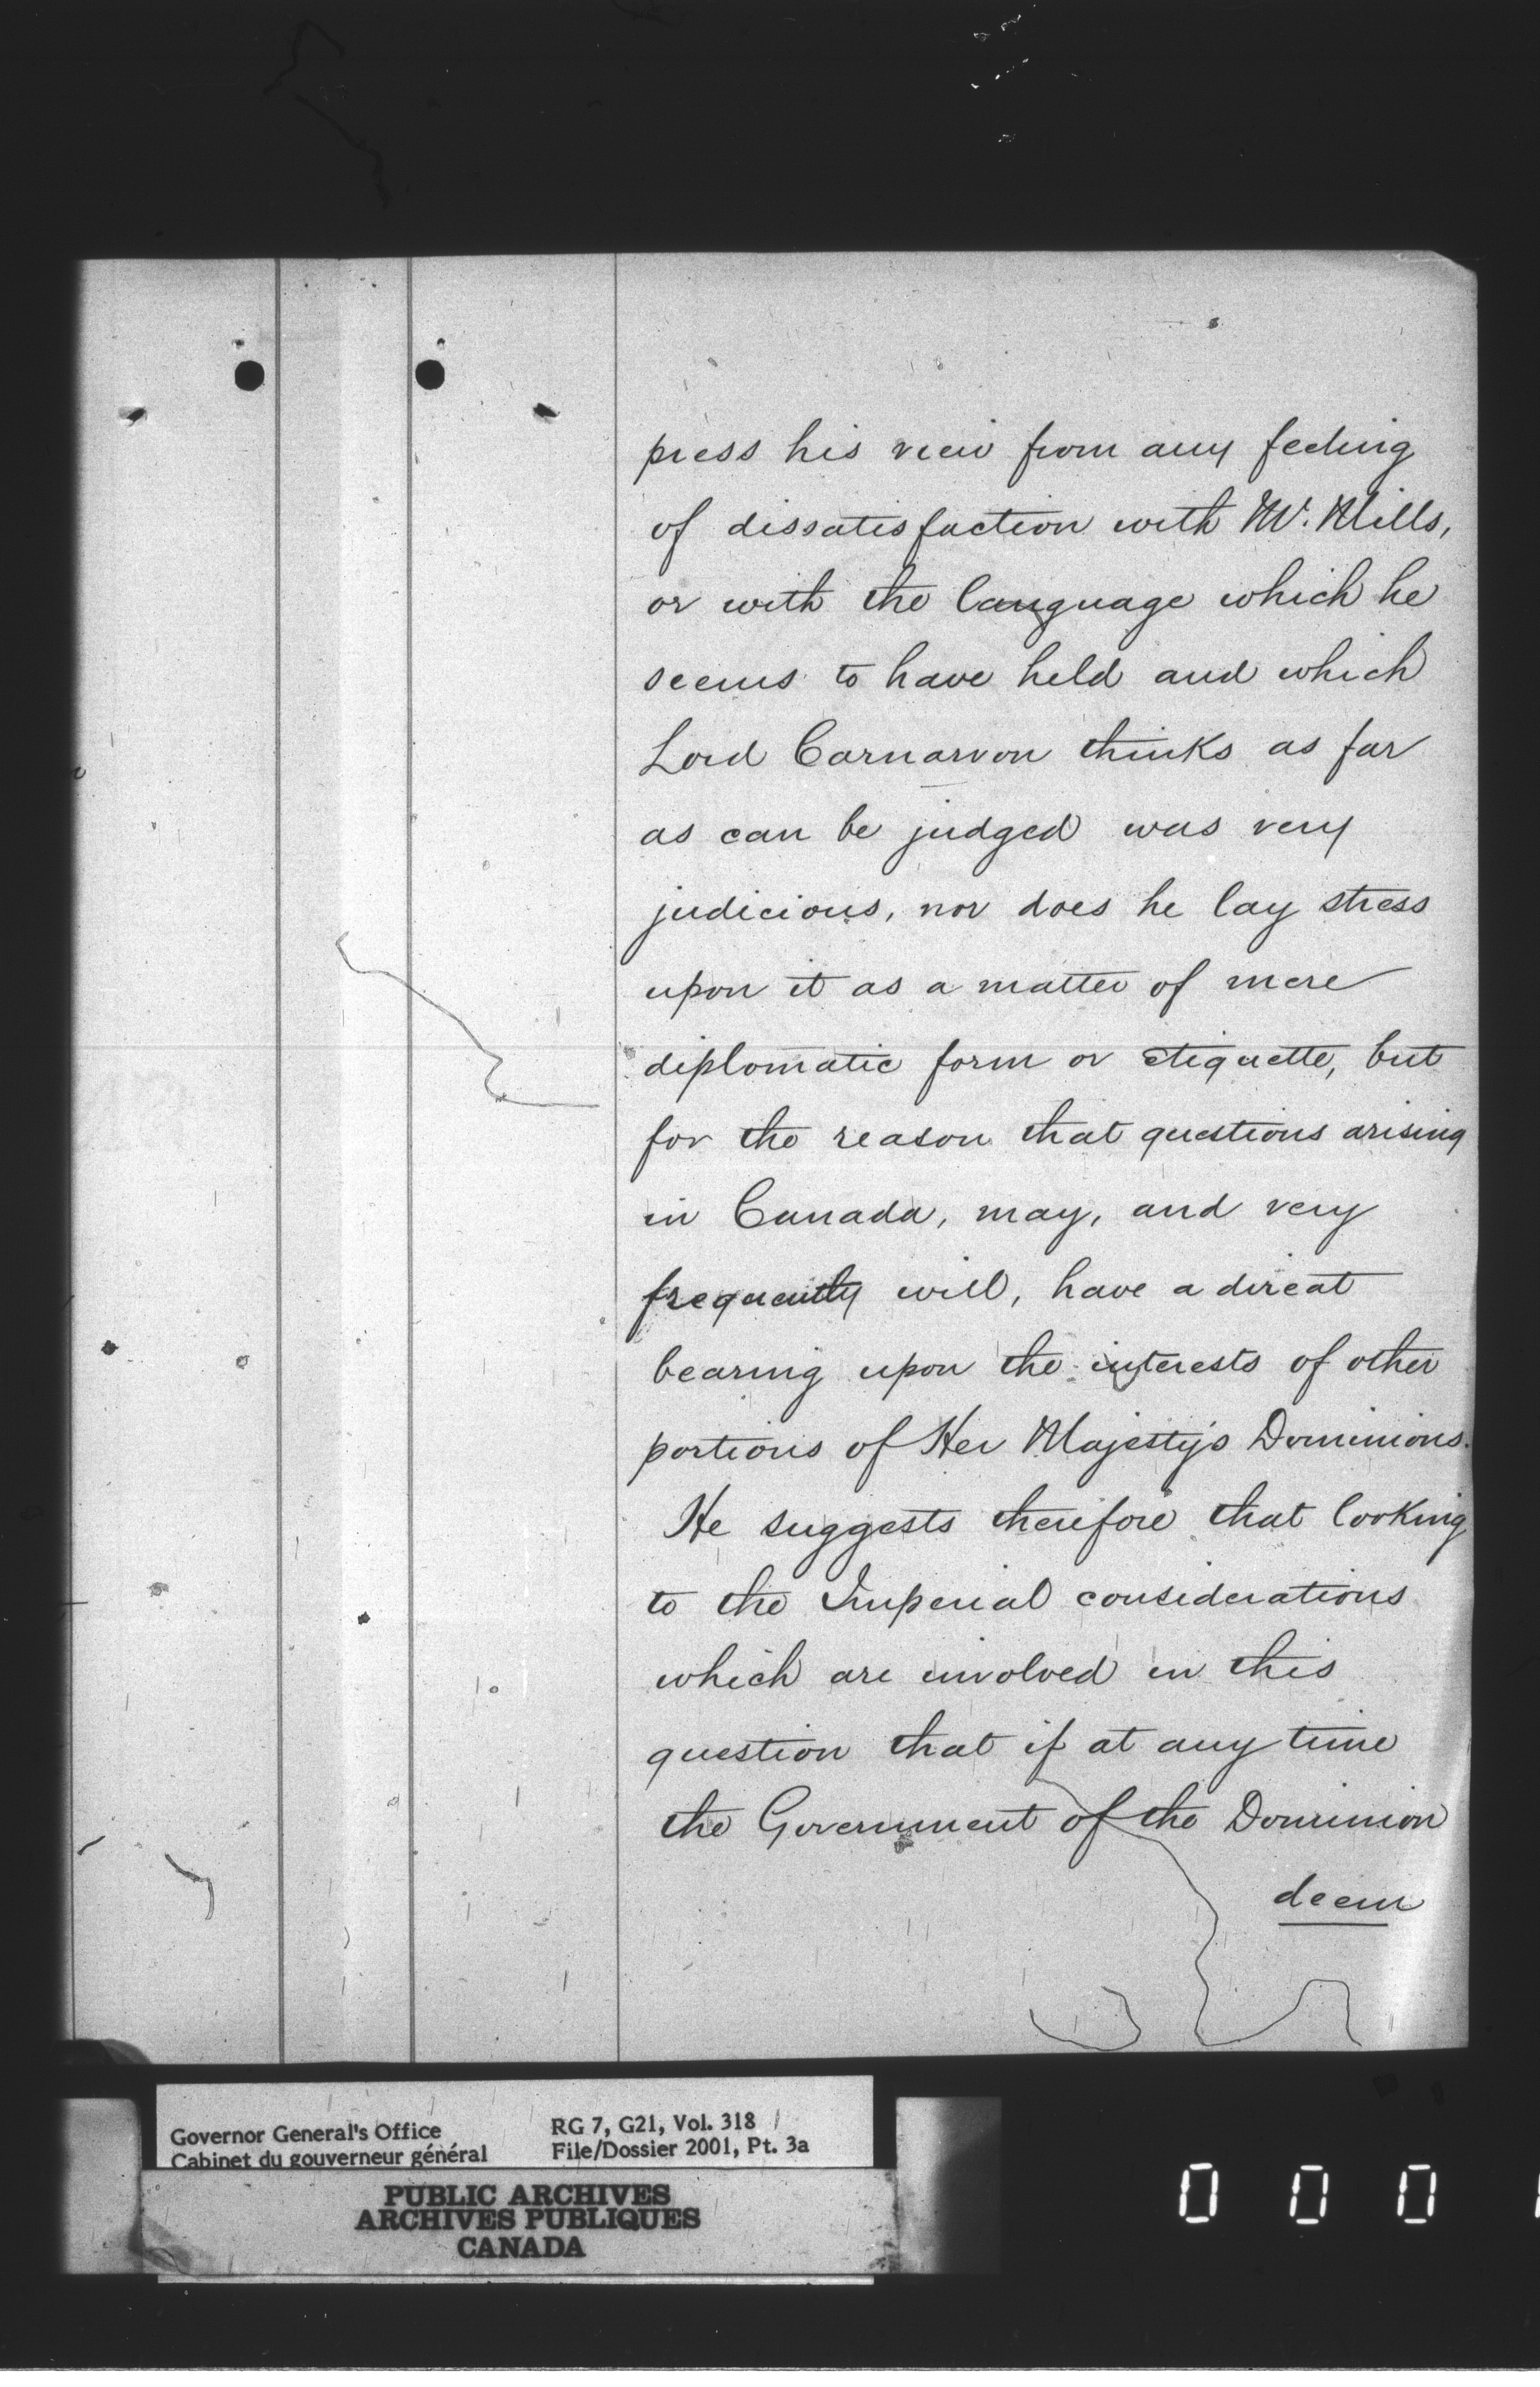 press his view from any feeling
of dissatisfaction with Mr. Mills,
or with the language which he
seems to have held and which
Lord Carnarvon thinks as far
as can be judged was very
judicious, nor does he lay stress
upon it as a matter of mere
diplomatic form or etiquette, but
for the reason that questions arising
in Canada, may, and very
frequently will, have a direct
bearing upon the interests of other
portions of Her Majesty's Dominions.
He suggests therefore that looking
to the Imperial considerations
which are involved in this
question that if at any time
the Government of the Dominion
deem
Governor General's Office
Cabinet du gouverneur général
RG 7, G21, Vol. 318
File/Dossier 2001, Pt. 3a
PUBLIC ARCHIVES
ARCHIVES PUBLIQUES
CANADA
0 0 0